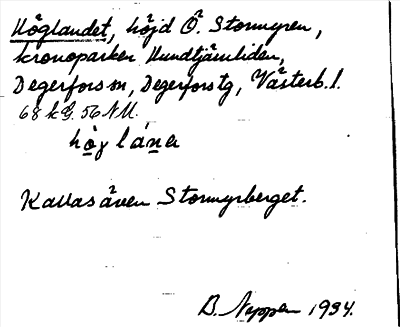 Höglandet, höjd Ö. Stormyren,
kronoparken Hundtjämliden,
Degerfors sn, Degerfors tg, Västerb. l.
68 k G. 56 NM.
hög lána
Kallas även Stormyrberget.
B. 1934.